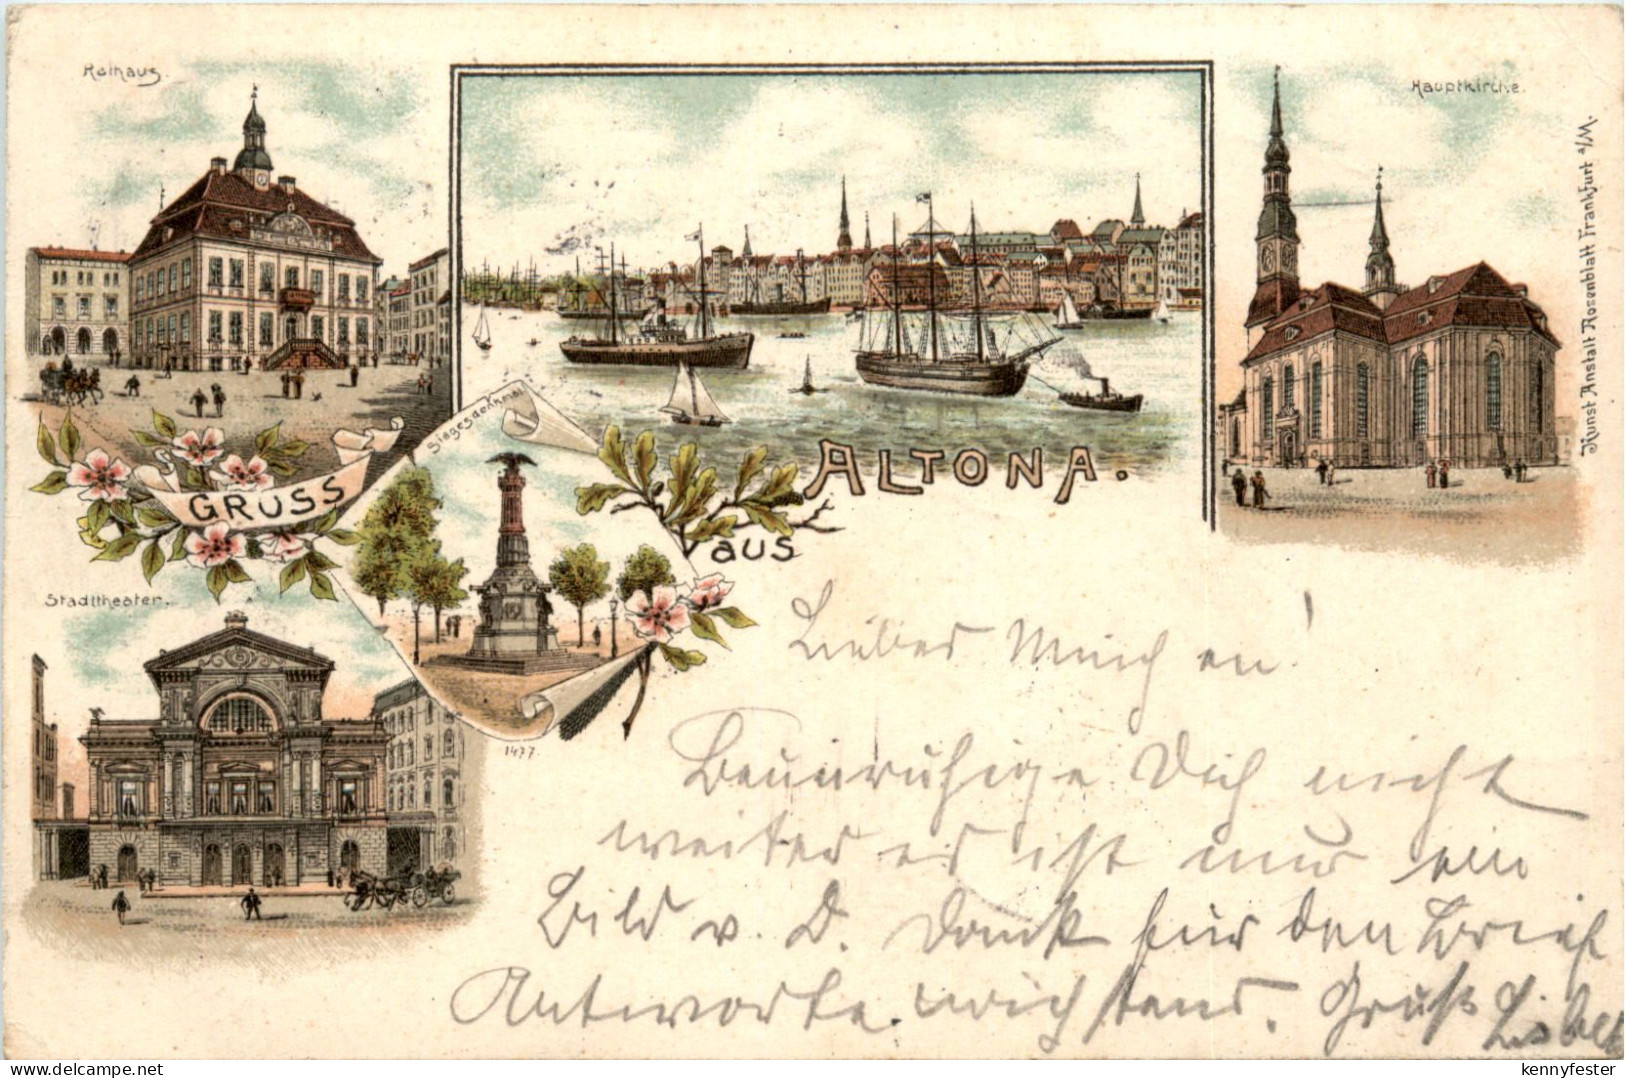 Rathaus.
Hauptkirche.
Kunst Anstalt Rosenblatt Frankfurt a/M.
Siegesdenkmal
GRUSS
aus
ALTONA.
Stadttheater.
1477.
Lieber
Beunruhige Dich nicht
weiter es ist nur ein
Bild v. D. Dank für den Brief
Antworte Gruß Lisbeth
delcampe.net
kennyfester